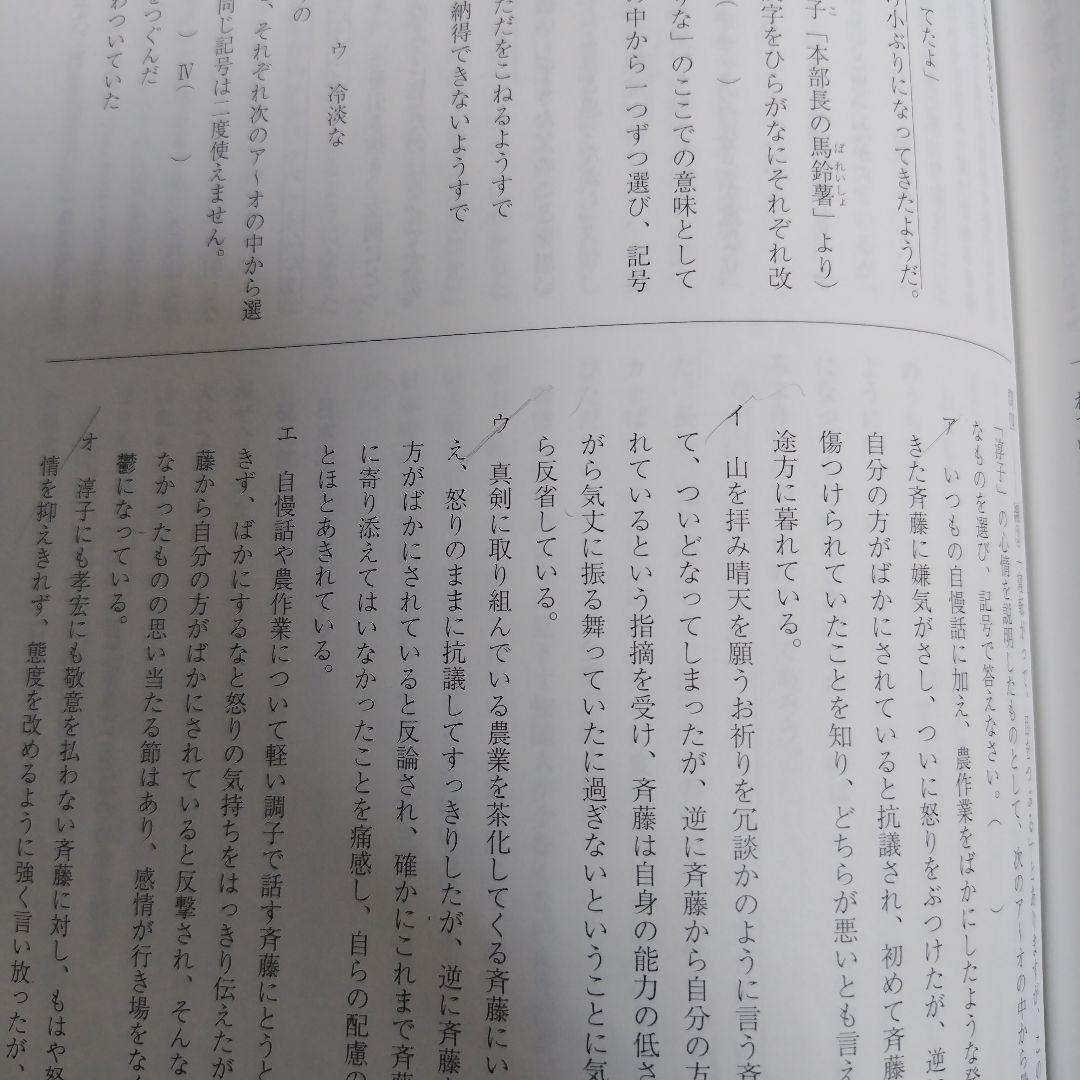 てたよ」
小ぶりになってきたようだ。
子「本部長の馬鈴薯」より)
字をひらがなにそれぞれ改
りな」のここでの意味として
の中から一つずつ選び、記号
ただをこねるようすで
納得できないようすで
ウ 冷淡な
の
、それぞれ次のア〜オの中から選
同じ記号は二度使えません。
) Ⅳ( )
をつぐんだ
わついていた
「淳子」の心情を説明したものとして、次のア〜オの中から
なものを選び、記号で答えなさい。( )
ア いつもの自慢話に加え、農作業をばかにしたような発
きた斉藤に嫌気がさし、ついに怒りをぶつけたが、逆
自分の方がばかにされていると抗議され、初めて斉藤
傷つけられていたことを知り、どちらが悪いとも言え
途方に暮れている。
イ 山を拝み晴天を願うお祈りを冗談かのように言う斉
て、ついどなってしまったが、逆に斉藤から自分の方
れているという指摘を受け、斉藤は自身の能力の低さ
がら気丈に振る舞っていたに過ぎないということに気
ら反省している。
ウ 真剣に取り組んでいる農業を茶化してくる斉藤にい
え、怒りのままに抗議してすっきりしたが、逆に斉藤
方がばかにされていると反論され、確かにこれまで斉藤
に寄り添えてはいなかったことを痛感し、自らの配慮の
とほとあきれている。
エ 自慢話や農作業について軽い調子で話す斉藤にとうと
きず、ばかにするなと怒りの気持ちをはっきり伝えたが
藤から自分の方がばかにされていると反撃され、そんな
なかったものの思い当たる節はあり、感情が行き場をな
鬱になっている。
オ 淳子にも孝宏にも敬意を払わない斉藤に対し、もはや怒
情を抑えきれず、態度を改めるように強く言い放ったが、